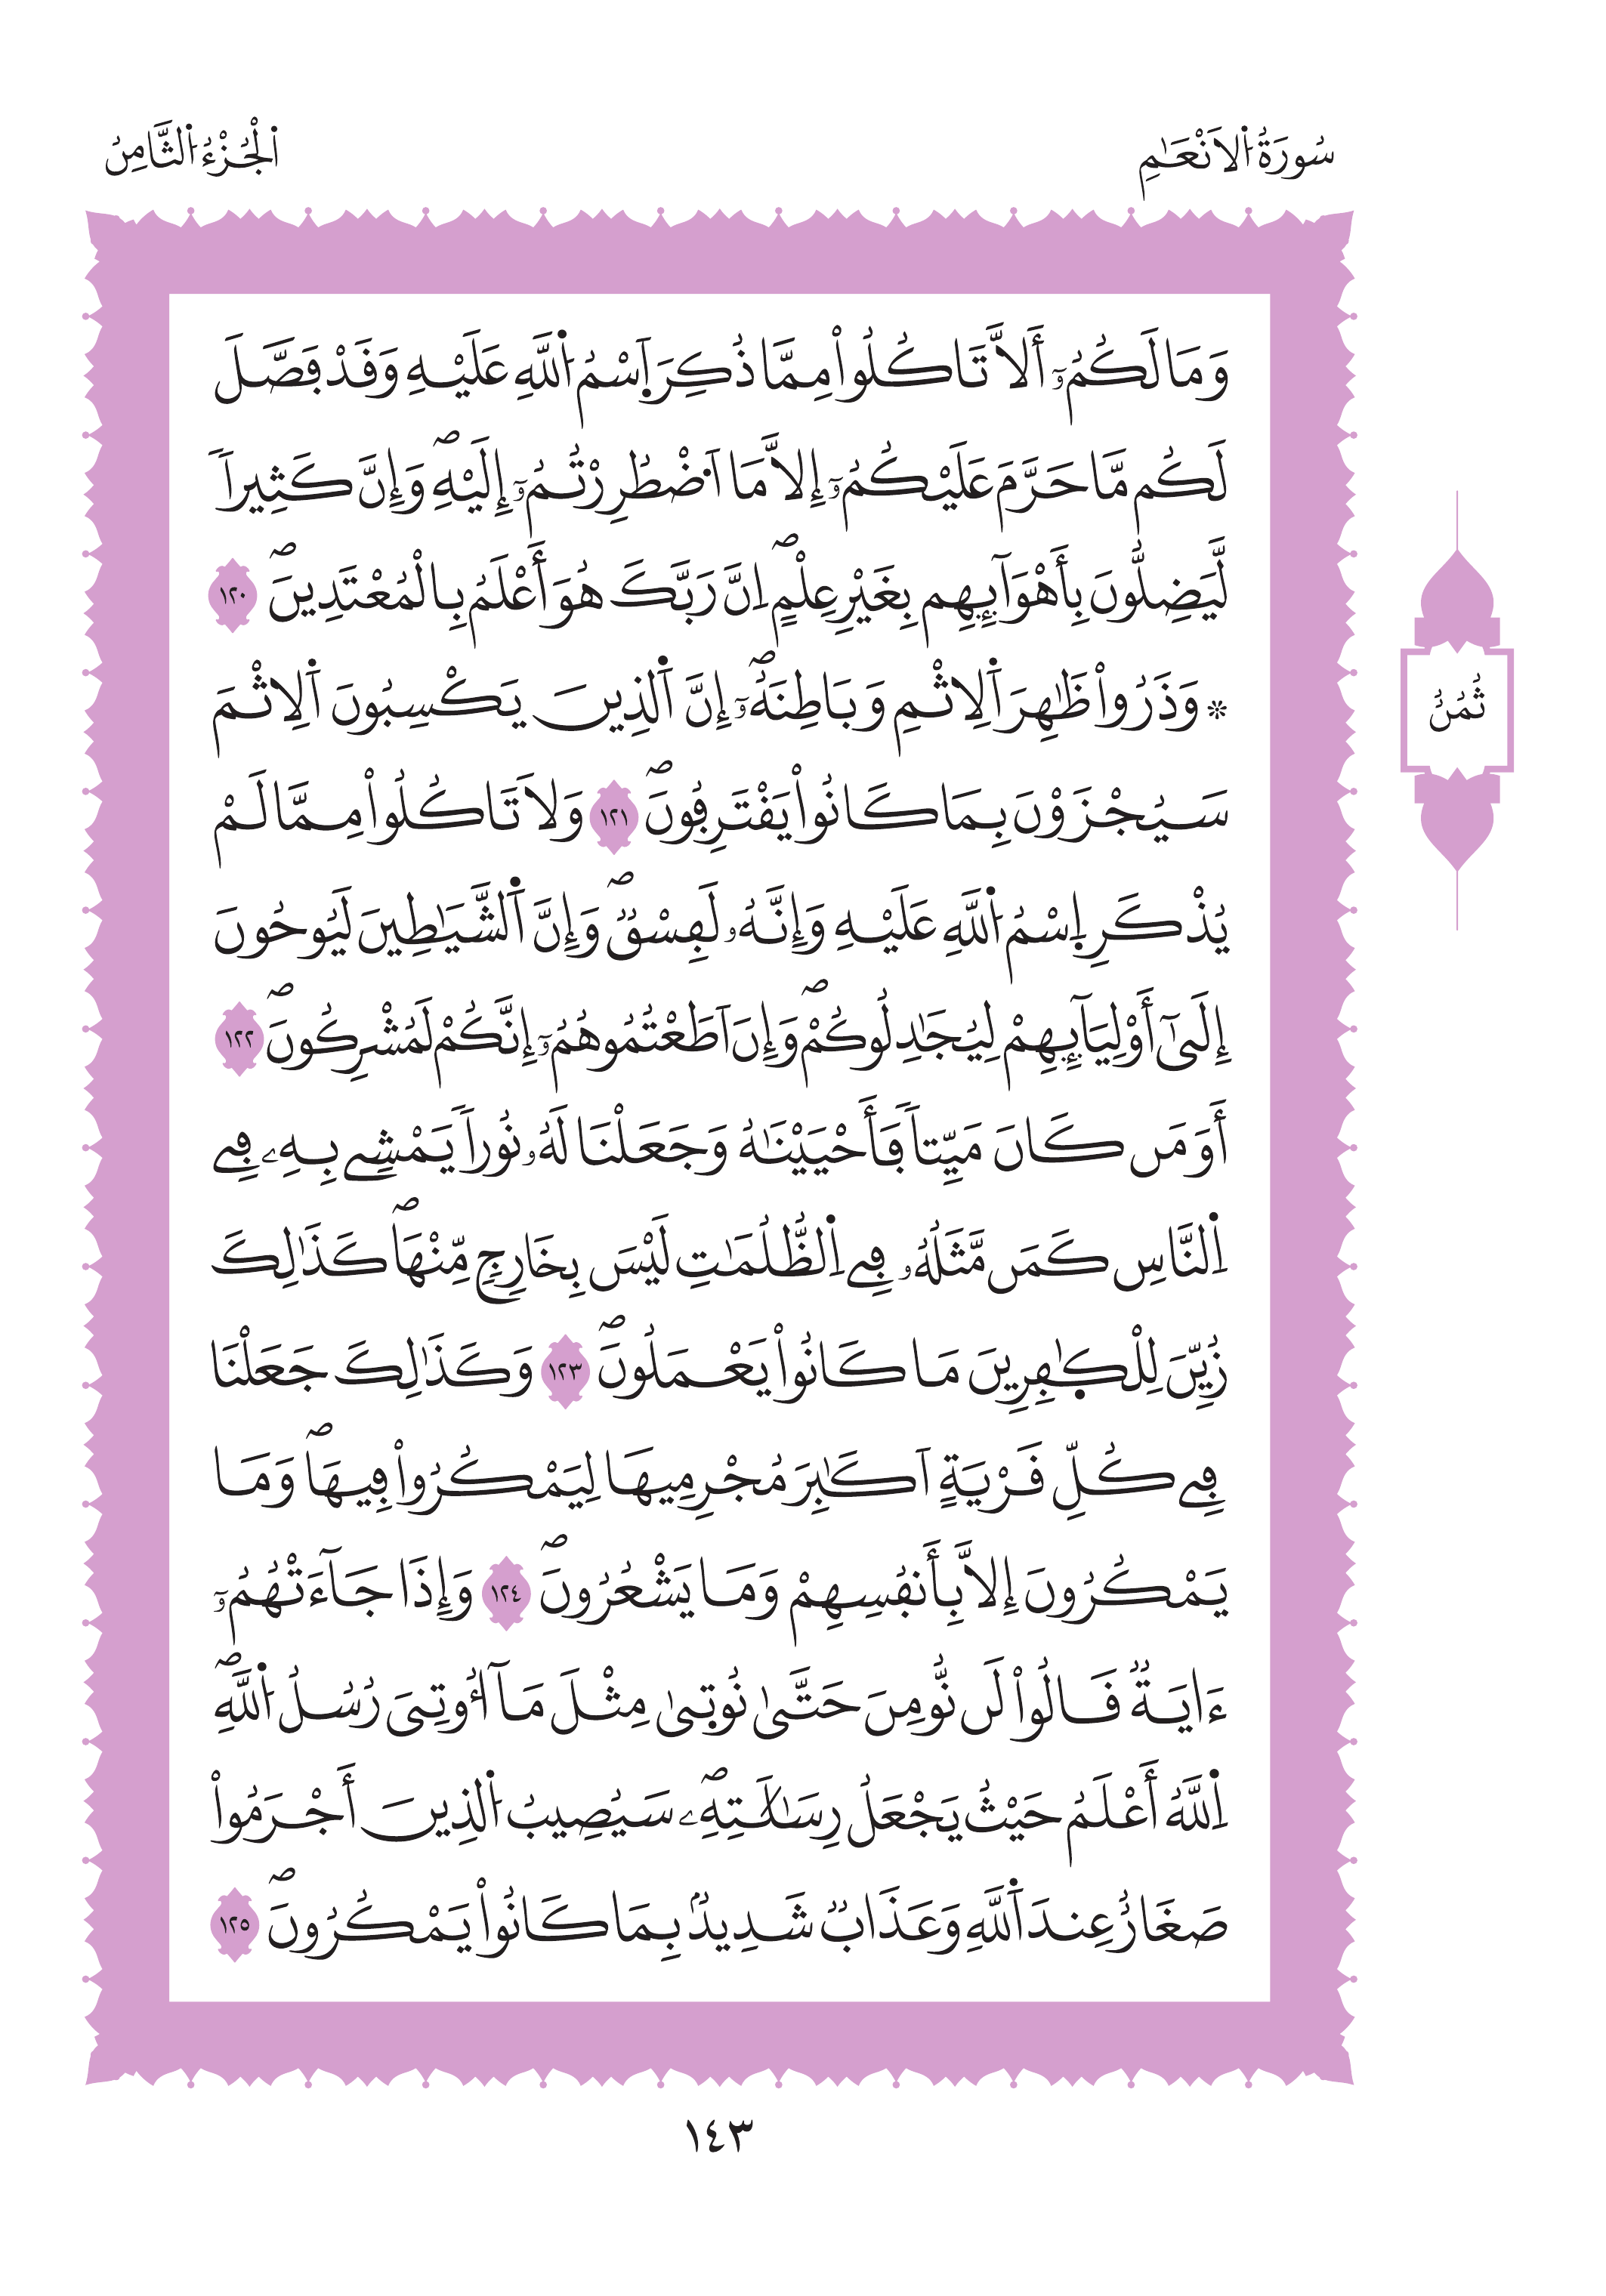 سُورَةُ اُ۬لَانْعَٰمِ
اَ۬لْجُزْءُ اُ۬لثَّامِنُ
وَمَا لَكُمُۥٓ أَلَّا تَاكُلُواْ مِمَّا ذُكِرَ اَ۪سْمُ اُ۬للَّهِ عَلَيْهِ وَقَدْ فَصَّلَ
لَكُم مَّا حَرَّمَ عَلَيْكُمُۥٓ إِلَّا مَا اَ۟ضْطُرِرْتُمُۥٓ إِلَيْهِۖ وَإِنَّ كَثِيراٗ
لَّيَضِلُّونَ بِأَهْوَآئِهِم بِغَيْرِ عِلْمٍۖ اِنَّ رَبَّكَ هُوَ أَعْلَمُ بِالْمُعْتَدِينَۖ ١٢٠
* وَذَرُواْ ظَٰهِرَ اَ۬لِاثْمِ وَبَاطِنَهُۥٓۖ إِنَّ اَ۬لذِينَ يَكْسِبُونَ اَ۬لِاثْمَ
سَيُجْزَوْنَ بِمَا كَانُواْ يَقْتَرِفُونَۖ ١٢١ وَلَا تَاكُلُواْ مِمَّا لَمْ
يُذْكَرِ اِ۪سْمُ اُ۬للَّهِ عَلَيْهِ وَإِنَّهُۥ لَفِسْقٞۖ وَإِنَّ اَ۬لشَّيَٰطِينَ لَيُوحُونَ
إِلَىٰٓ أَوْلِيَآئِهِمْ لِيُجَٰدِلُوكُمْۖ وَإِنَ اَطَعْتُمُوهُمُۥٓ إِنَّكُمْ لَمُشْرِكُونَۖ ١٢٢
أَوَمَن كَانَ مَيِّتاٗ فَأَحْيَيْنَٰهُ وَجَعَلْنَا لَهُۥ نُوراٗ يَمْشِے بِهِۦ فِے
اِ۬لنَّاسِ كَمَن مَّثَلُهُۥ فِے اِ۬لظُّلُمَٰتِ لَيْسَ بِخَارِجٖ مِّنْهَاۖ كَذَٰلِكَ
زُيِّنَ لِلْكٰ۪فِرِينَ مَا كَانُواْ يَعْمَلُونَۖ ١٢٣ وَكَذَٰلِكَ جَعَلْنَا
فِے كُلِّ قَرْيَةٍ اَكَٰبِرَ مُجْرِمِيهَا لِيَمْكُرُواْ فِيهَاۖ وَمَا
يَمْكُرُونَ إِلَّا بِأَنفُسِهِمْ وَمَا يَشْعُرُونَۖ ١٢٤ وَإِذَا جَآءَتْهُمُۥٓ
ءَايَةٞ قَالُواْ لَن نُّومِنَ حَتَّىٰ نُوتِىٰ مِثْلَ مَآ أُوتِىَ رُسُلُ اُ۬للَّهِۖ
اِ۬للَّهُ أَعْلَمُ حَيْثُ يَجْعَلُ رِسَٰلَٰتِهِۦۖ سَيُصِيبُ اُ۬لذِينَ أَجْرَمُواْ
صَغَارٌ عِندَ اَ۬للَّهِ وَعَذَابٞ شَدِيدُۢ بِمَا كَانُواْ يَمْكُرُونَۖ ١٢٥
ثُمُنُ
١٤٣